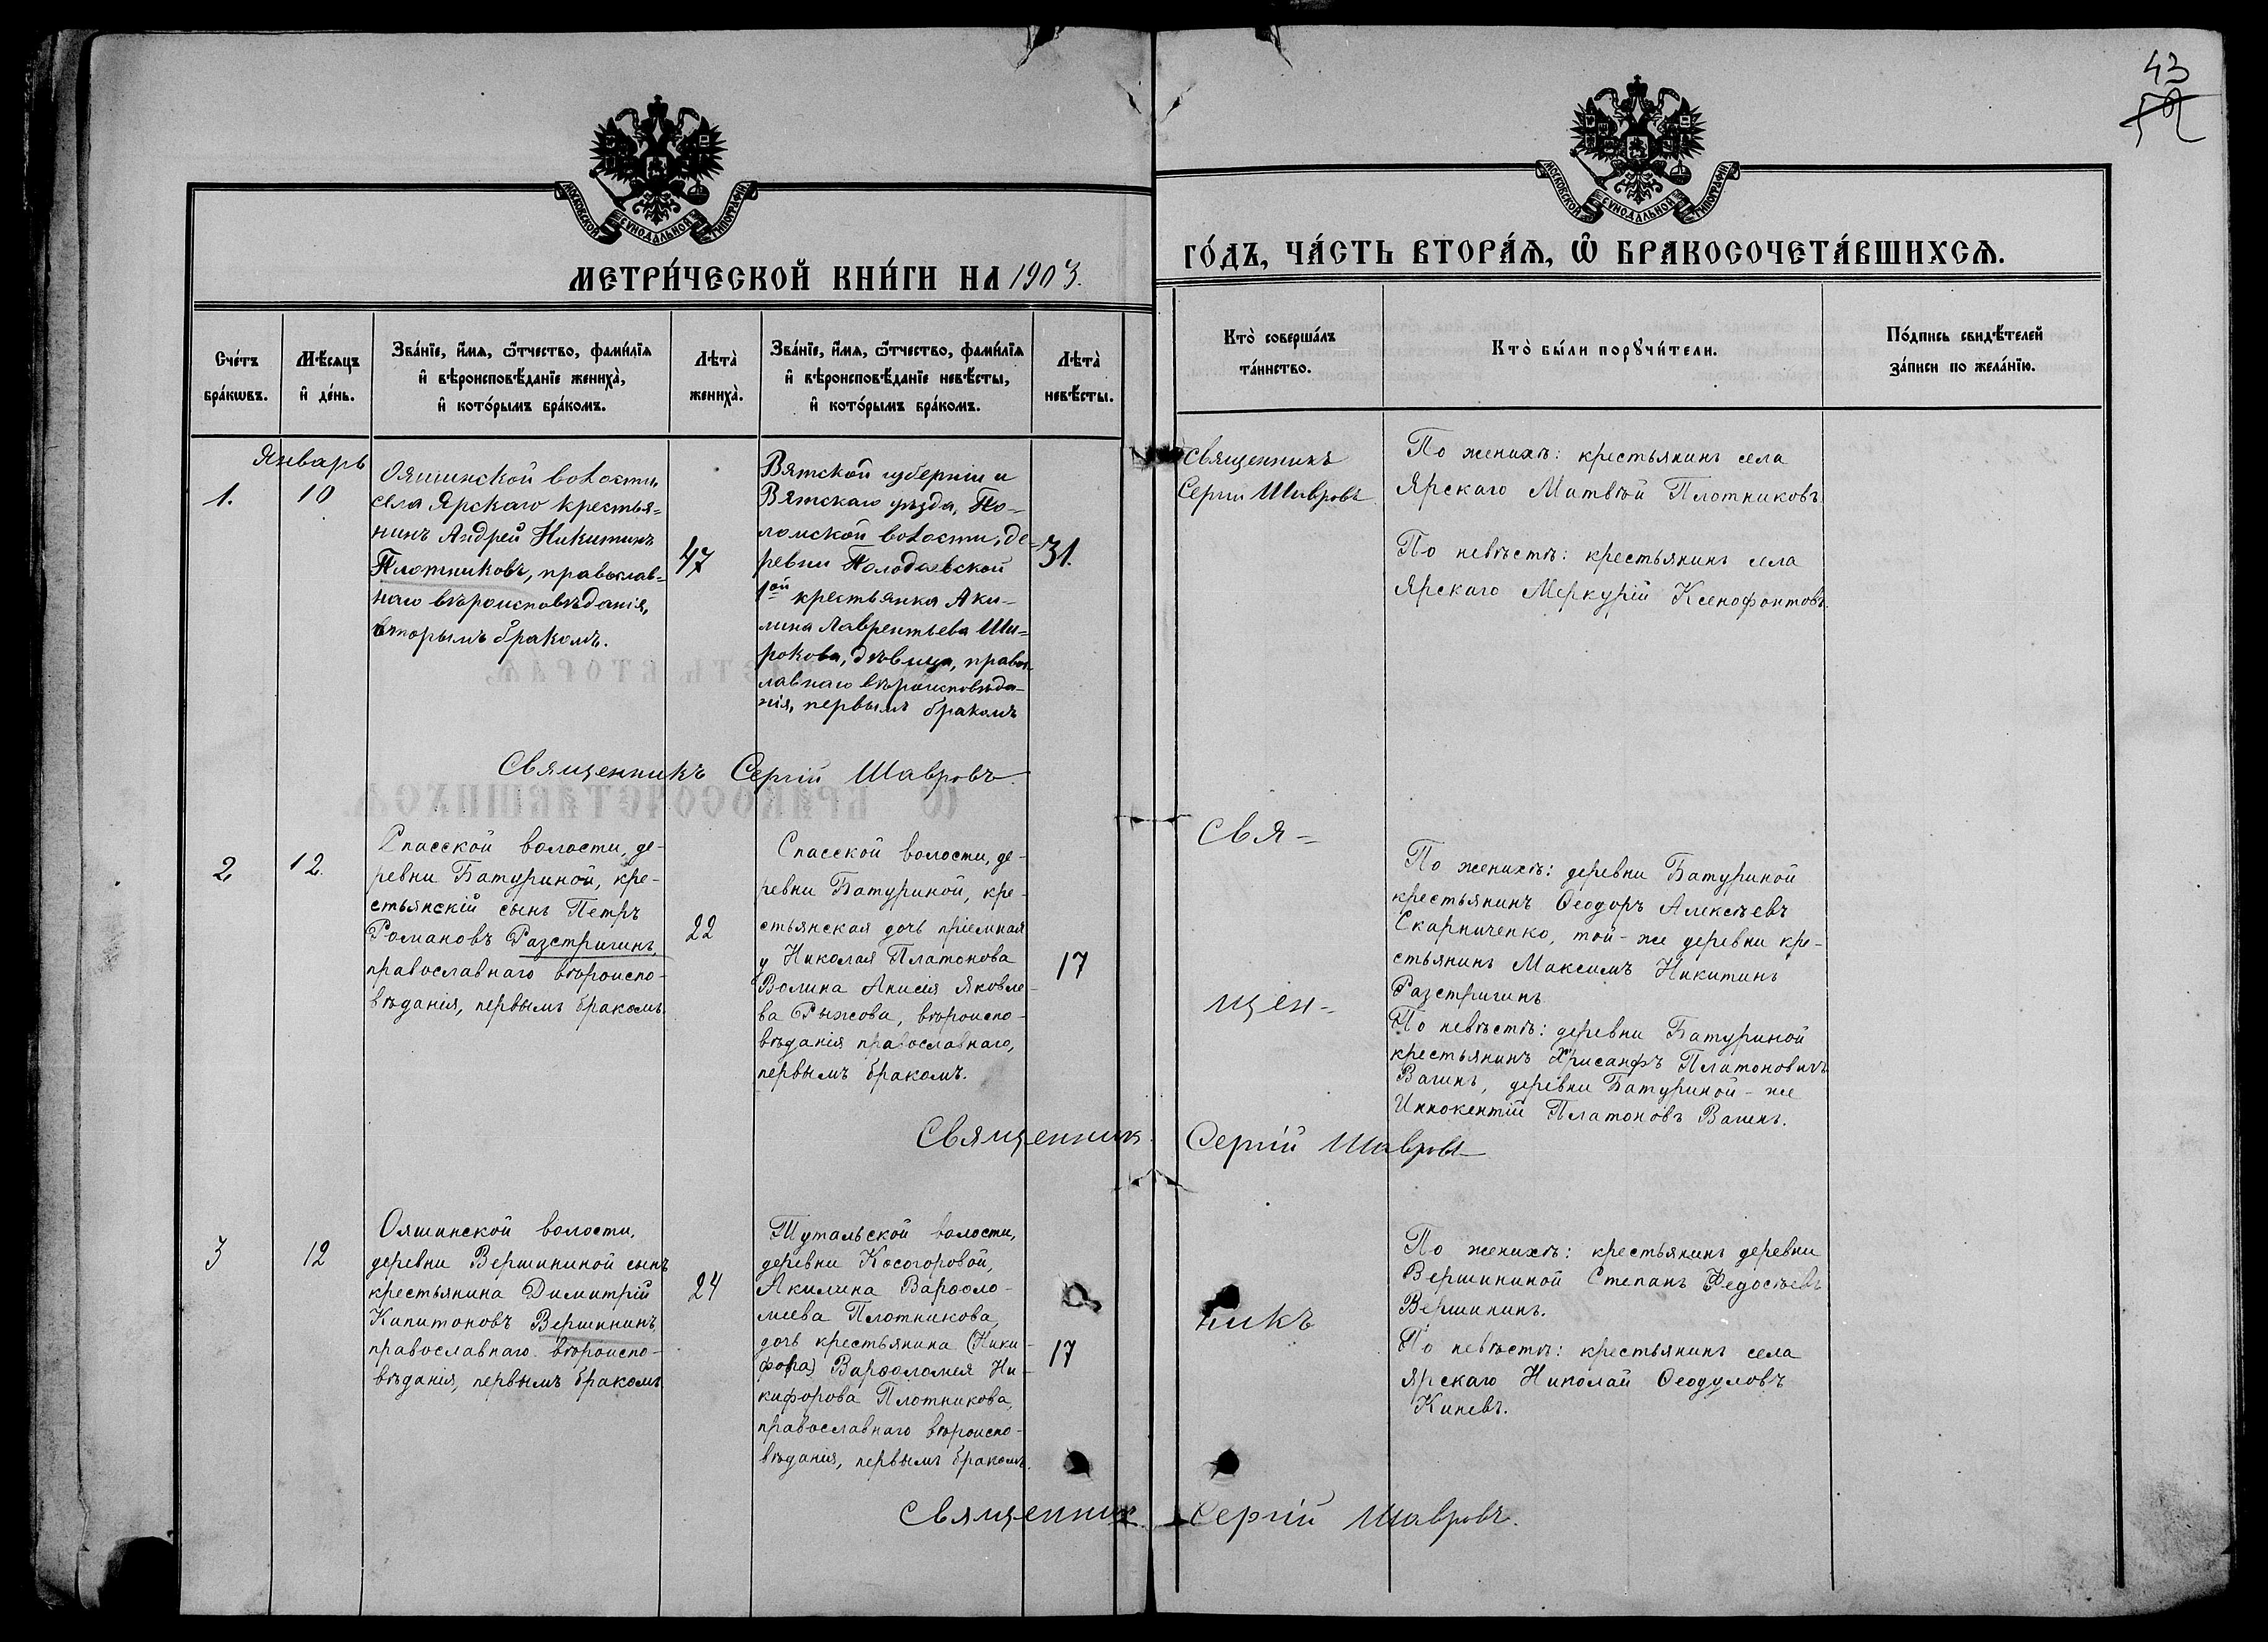 43
52
МОСКОВСКОЙ СѴНОДАЛЬНОЙ ТИПОГРАФІИ
МОСКОВСКОЙ СѴНОДАЛЬНОЙ ТИПОГРАФІИ
МЕТРИ́ЧЕСКОЙ КНИ́ГИ НА 1903.
ГО́ДЪ, ЧА́СТЬ ВТОРА́Ѧ, Ѽ БРАКОСОЧЕТА́ВШИХСѦ.
Сче́тъ
бра́кѡвъ.
Мѣ́сѧцъ
и҆ де́нь.
Зва́нїе, и҆́мѧ, ѻ҆́тчество, фами́лїѧ
и҆ вѣроисповѣ́данїе жениха̀,
и҆ кото́рымъ бра́комъ.
Лѣта̀
жениха̀.
Зва́нїе, и҆́мѧ, ѻ҆́тчество, фами́лїѧ
и҆ вѣроисповѣ́данїе невѣ́сты,
и҆ кото́рымъ бра́комъ.
Лѣта̀
невѣ́сты.
Кто̀ соверша́лъ
та́инство.
Кто̀ бы́ли порꙋчи́тели.
По́дпись свидѣ́телей
за́писи по жела́нїю.
Январь
1.
10
Ояшинской волости,
села Ярскаго крестья=
нинъ Андрей Никитинъ
Плотниковъ, православ=
наго вѣроисповѣданія,
вторымъ бракомъ.
47
Вятской губерніи и
Вятскаго уѣзда, По-
ломской волости, де-
ревни Полодаевской
1ой крестьянка Аки-
лина Лаврентьева Ши=
рокова, дѣвица, правос-
лавнаго вѣроисповѣда-
нія, первымъ бракомъ
31.
Священникъ
Сергій Шавровъ
По женихѣ: крестьянинъ села
Ярскаго Матвѣй Плотниковъ
По невѣстѣ: крестьянинъ села
Ярскаго Меркурій Ксенофонтовъ.
Священникъ Сергій Шавровъ.
2
12.
Спасской волости, де-
ревни Батуриной, кре-
стьянскій сынъ Петръ
Романовъ Разстригинъ,
православнаго вѣроиспо-
вѣданія, первымъ бракомъ
22
Спасской волости, де-
ревни Батуриной, кре-
стьянская дочь пріемная
у Николая Платонова
Волина Анисія Яковле-
ва Рыжова, вѣроиспо-
вѣданія православнаго,
первымъ бракомъ.
17
Свя-
щен-
По женихѣ: деревни Батуриной
крестьянинъ Ѳеодоръ Алексѣевъ
Скарниченко, той-же деревни кре-
стьянинъ Максимъ Никитинъ
Разстригинъ
По невѣстѣ: деревни Батуриной
крестьянинъ Хрисанфъ Платоновичъ
Вагинъ, деревни Батуриной-же
Иннокентій Платоновъ Вагинъ.
Священник Сергій Шавровъ
3
12
Ояшинской волости,
деревни Вершининой сынъ
крестьянина Димитрій
Капитоновъ Вершининъ,
православнаго вѣроиспо-
вѣданія, первымъ бракомъ
24
Тутальской волости,
деревни Косогоровой,
Акилина Варѳоло-
меева Плотникова,
дочь крестьянина (Ники-
фора) Варѳоломея Ни-
кифорова Плотникова,
православнаго вѣроиспо-
вѣданія, первымъ бракомъ.
17
никъ
По женихѣ: крестьянинъ деревни
Вершининой Степанъ Федосѣевъ
Вершининъ.
По невѣстѣ: крестьянинъ села
Ярскаго Николай Ѳеодуловъ
Киневъ.
Священник Сергій Шавровъ.